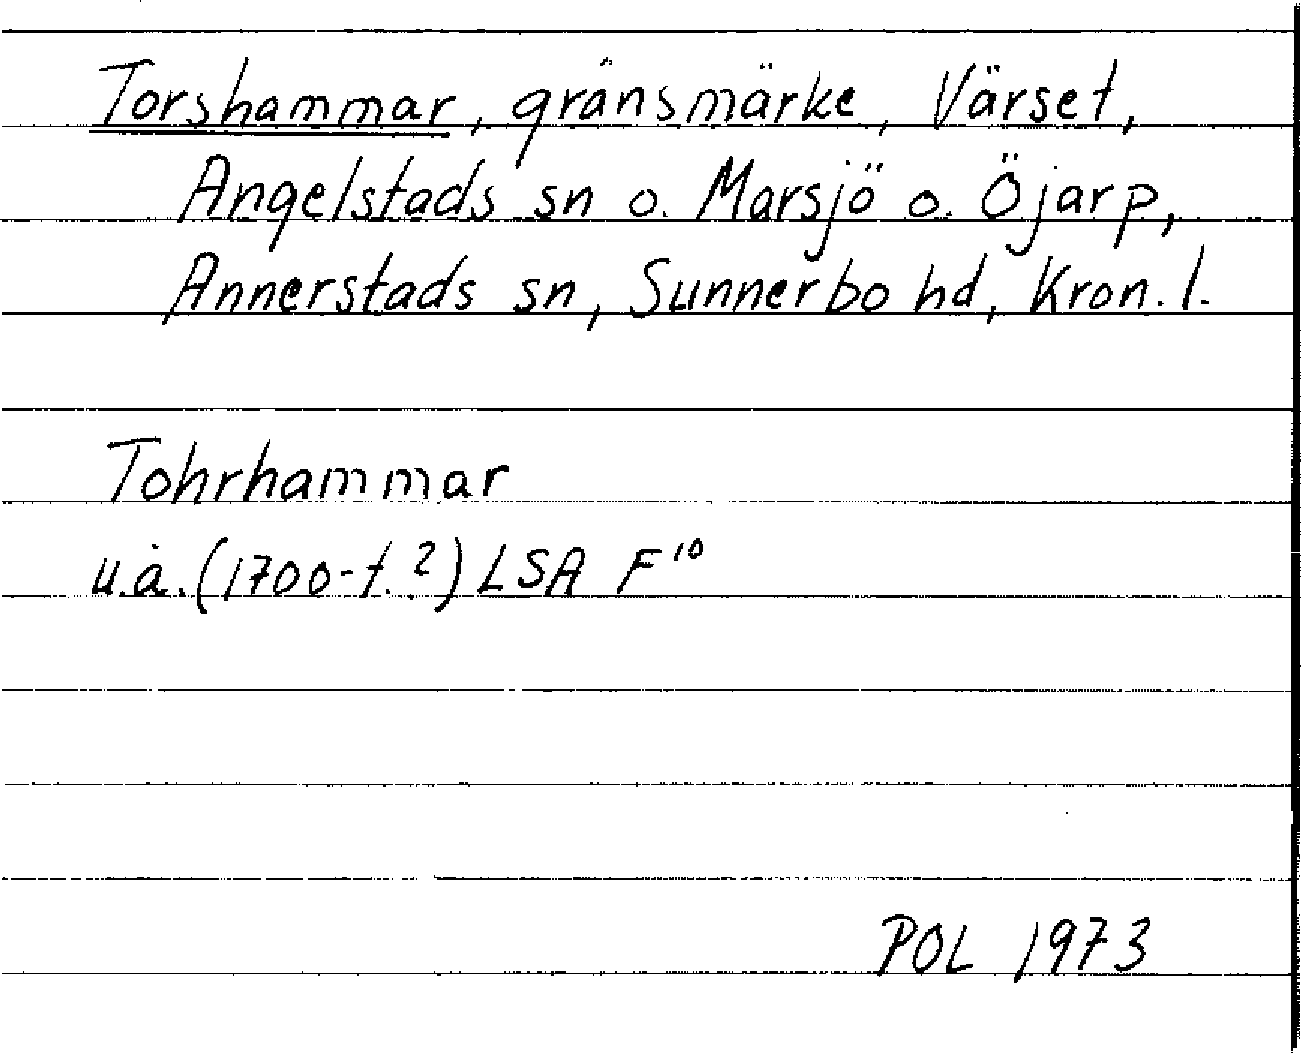 Torshammar, gränsmärke, Värset,
Angelstads sn o. Marsjö o. Öjarp,
Annerstads sn, Sunnerbo hd, Kron. l.
Tohrhammar
u.å. (1700-t.?) LSA F¹⁰
POL 1973